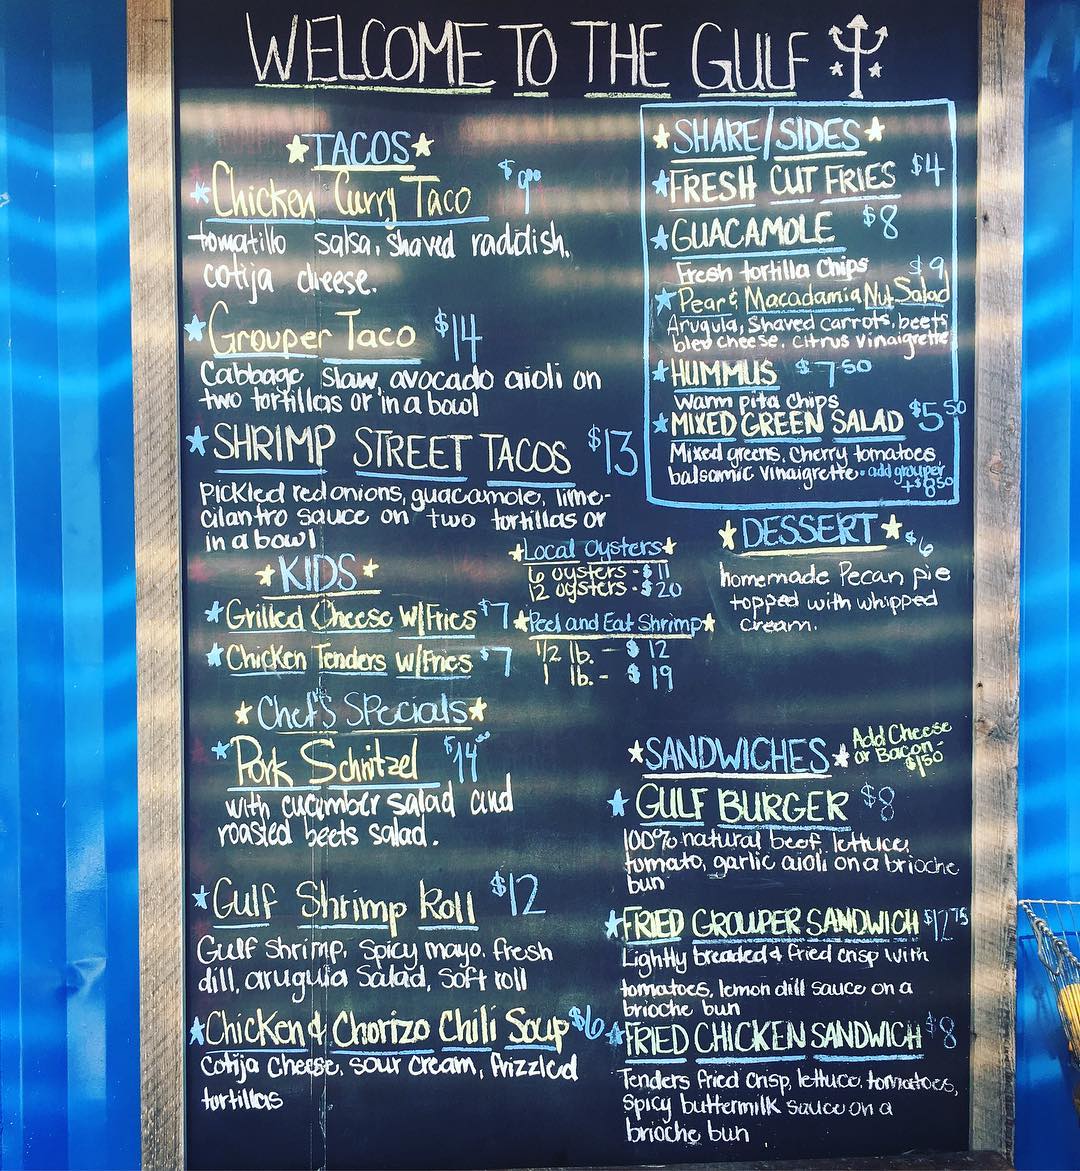 WELCOME TO THE GULF
TACOS
Chicken Curry Taco $9.00
tomatillo salsa, shaved raddish,
cotija cheese.
Grouper Taco $14
Cabbage slaw, avocado aioli on
two tortillas or in a bowl
SHRIMP STREET TACOS $13
pickled red onions, guacamole, lime-
cilantro sauce on two tortillas or
in a bowl
KIDS
Grilled Cheese W/Fries $7
Chicken Tenders W/Fries $7
Local Oysters
6 oysters - $11
12 oysters - $20
Peel and Eat Shrimp
1/2 lb. - $12
1 lb. - $19
Chef's Specials
Pork Schnitzel $14
with cucumber salad and
roasted beets salad.
Gulf Shrimp Roll $12
Gulf shrimp, spicy mayo, fresh
dill, arugula salad, soft roll
Chicken & Chorizo Chili Soup $6
Cotija Cheese, sour cream, frizzled
tortillas
SHARE/SIDES
FRESH CUT FRIES $4
GUACAMOLE $8
Fresh tortilla Chips
$9
Pear & Macadamia Nut Salad
Arugula, Shaved carrots, beets
bleu cheese, citrus vinaigrette
HUMMUS $7.50
warm pita chips
MIXED GREEN SALAD $5.50
Mixed greens, Cherry tomatoes,
balsamic vinaigrette - add grouper
+$8.50
DESSERT $6
homemade Pecan pie
topped with whipped
cream.
SANDWICHES
Add Cheese
or Bacon -
$1.50
GULF BURGER $8
100% natural beef, lettuce,
tomato, garlic aioli on a brioche
bun
FRIED GROUPER SANDWICH $12.75
Lightly breaded & fried crisp with
tomatoes, lemon dill sauce on a
brioche bun
FRIED CHICKEN SANDWICH $8
Tenders fried crisp, lettuce, tomatoes,
spicy buttermilk sauce on a
brioche bun